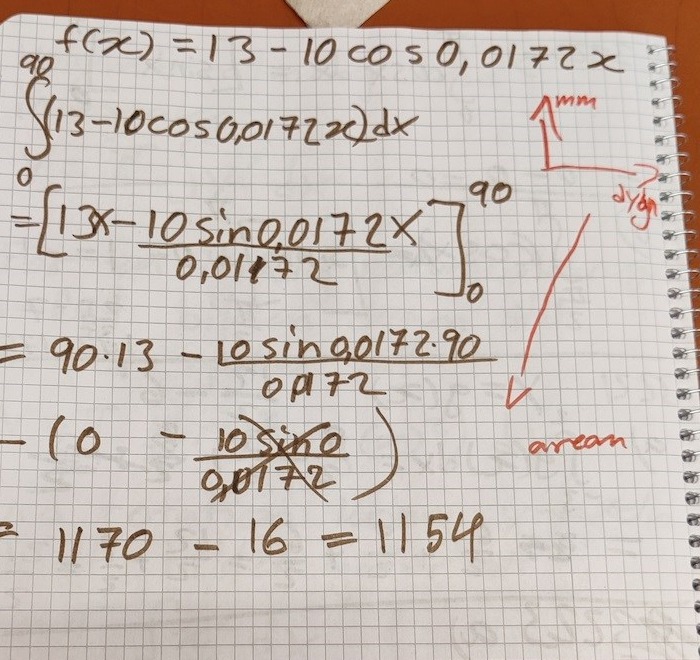 f(x) = 13 - 10 cos 0,0172x
90
∫(13-10cos0,0172x)dx
0
= [13x - 10 sin 0,0172x / 0,0172]
90
0
= 90·13 - 10 sin 0,0172·90 / 0,0172
- (0 - 10 sin 0 / 0,0172)
= 1170 - 16 = 1154
mm
dygn
arean